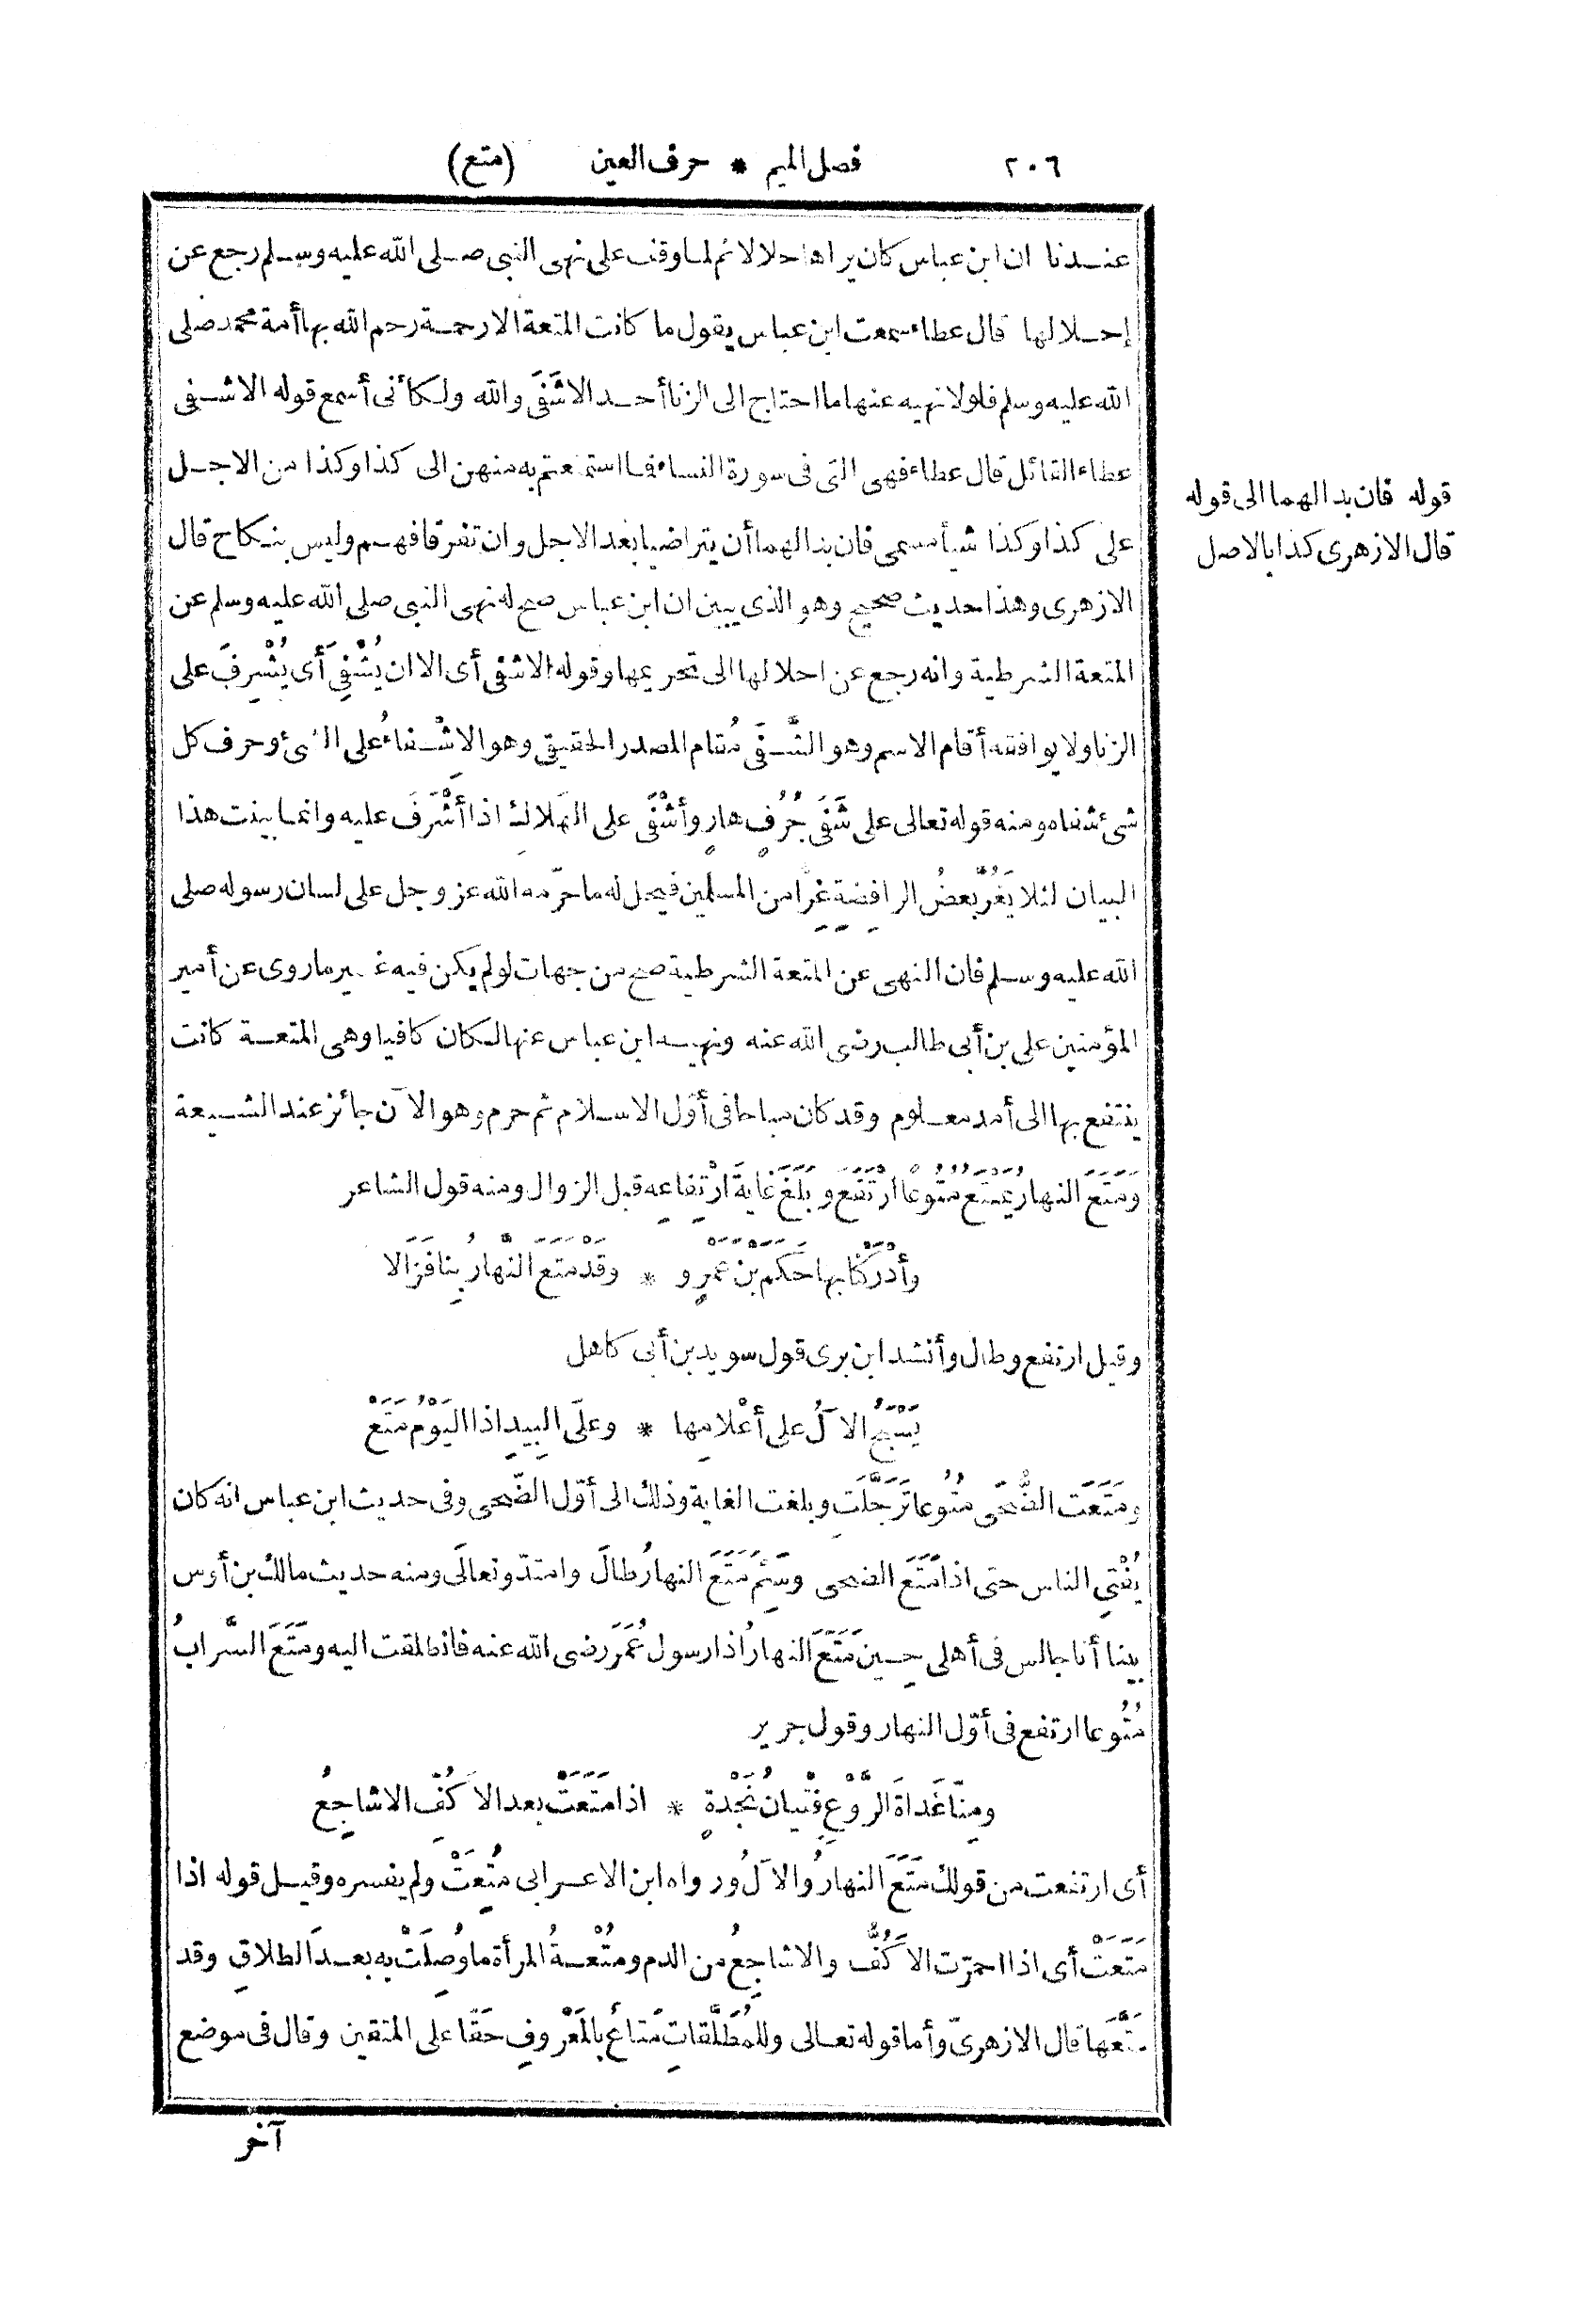 ٢٠٦ فصل الميم * حرف العين (متع)
عندنا ان ابن عباس كان يراها حلالا ثم لما وقف على نهى النبى صلى الله عليه وسلم رجع عن
إحلالها قال عطاء سمعت ابن عباس يقول ما كانت المتعة الا رحمة رحم الله بها أمة محمد صلى
الله عليه وسلم فلولا نهيه عنها ما احتاج الى الزنا أحد الا شَفًى والله ولكأنى أسمع قوله الا شفى
عطاء القائل قال عطاء فهى التى فى سورة النساء فما استمتعتم به منهن الى كذا وكذا من الاجل
على كذا وكذا شيأ مسمى فان بدا لهما أن يتراضيا بعد الاجل وان تفرقا فهم وليس بنكاح قال
الازهرى وهذا حديث صحيح وهو الذى يبين ان ابن عباس صح له نهى النبى صلى الله عليه وسلم عن
المتعة الشرطية وانه رجع عن احلالها الى تحريمها وقوله الا شفى أى الا ان يُشْفِىَ أى يُشْرِفَ على
الزنا ولا يوافقه أقام الاسم وهو الشَّفَى مُقام المصدر الحقيقى وهو الاِشْفاءُ على الشئ وحرف كل
شئ شفاه ومنه قوله تعالى على شَفَى جُرُفٍ هارٍ وأَشْفَى على الهَلاك اذا أَشْرَفَ عليه وانما بينت هذا
البيان لئلا يَغُرَّ بعضُ الرافِضةِ غِرًّا من المسلمين فيحل له ما حرّمه الله عز وجل على لسان رسوله صلى
الله عليه وسلم فان النهى عن المتعة الشرطية صح من جهات لو لم يكن فيه غير ما روى عن أمير
المؤمنين على بن أبى طالب رضى الله عنه ونهيه ابن عباس عنها لكان كافيا وهى المتعة كانت
ينتفع بها الى أمد معلوم وقد كان مباحا فى أوّل الاسلام ثم حرم وهو الآن جائز عند الشيعة
ومَتَعَ النهارُ يَمْتَعُ مُتُوعًا ارْتَفَعَ وبَلَغَ غايةَ ارْتِفاعِه قبل الزوال ومنه قول الشاعر
وأَدْرَكْنا بها حَكَمَ بْنَ عَمْرٍو * وقَدْ مَتَعَ النَّهارُ بِنا فَزَالا
وقيل ارتفع وطال وأنشد ابن برى قول سويد بن أبى كاهل
يَسْبَحُ الآلُ على أَعْلامِها * وعلَى البِيدِ اذا اليَوْمُ مَتَعْ
ومَتَعَت الضُّحَى مُتُوعا تَرَجَّلَت وبلغت الغاية وذلك الى أوّل الضّحى وفى حديث ابن عباس انه كان
يُفْتِى الناس حتى اذا مَتَعَ الضحى وسَئِمَ مَتَعَ النهارُ طالَ وامتدّ وتعالَى ومنه حديث مالك بن أوس
بينا أنا جالس فى أهلى حِينَ مَتَعَ النهارُ اذا رسول عُمَرَ رضى الله عنه فانطلقت اليه ومَتَعَ السَّرابُ
مُتُوعا ارتفع فى أوّل النهار وقول جرير
ومِنّا غَداةَ الرَّوْعِ فِتْيانُ نَجْدةٍ * اذا مَتَعَتْ بعد الاَكُفِّ الاشاجِعُ
أى ارتفعت من قولك مَتَعَ النهارُ والآلُ ورواه ابن الاعرابى مُتِعَتْ ولم يفسره وقيل قوله اذا
مَتَعَتْ أى اذا احمرّت الاَكُفُّ والاشاجِعُ من الدم ومُتْعةُ المرأة ما وُصِلَتْ به بعدَ الطلاقِ وقد
مَتَّعَها قال الازهرىّ وأما قوله تعالى وللمُطَلَّقاتِ مَتاعٌ بالمَعْروفِ حَقًّا على المتقين وقال فى موضع
آخر
قوله فان بدا لهما الى قوله
قال الازهرى كذا بالاصل